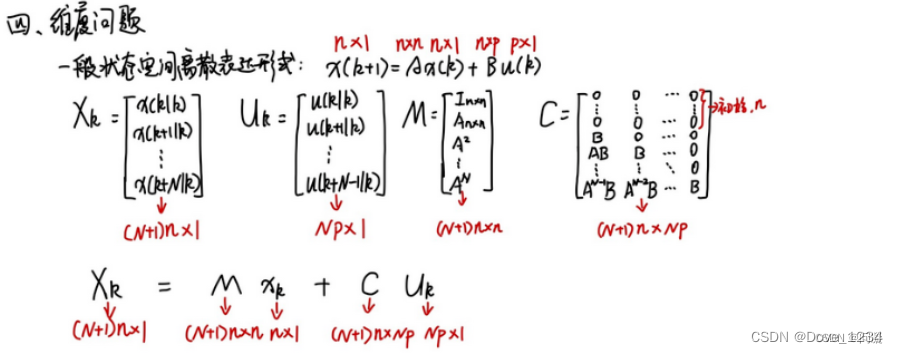 四、维度问题
n×1 n×n n×1 n×p p×1
一般状态空间离散表达形式: x(k+1)=Ax(k)+Bu(k)
X_k = [x(k|k) x(k+1|k) ⋮ x(k+N|k)] U_k = [u(k|k) u(k+1|k) ⋮ u(k+N-1|k)] M = [I_{n×n} A_{n×n} A^2 ⋮ A^N] C = [0 0 ⋯ 0; ⋮ ⋮ ⋮; 0 0 ⋯ 0; B 0 ⋯ 0; AB B ⋯ 0; ⋮ ⋮ ⋱ 0; A^{N-1}B A^{N-2}B ⋯ B]
(N+1)n×1 Np×1 (N+1)n×n (N+1)n×Np
X_k = M x_k + C U_k
(N+1)n×1 (N+1)n×n n×1 (N+1)n×Np Np×1
CSDN @Dove_1234